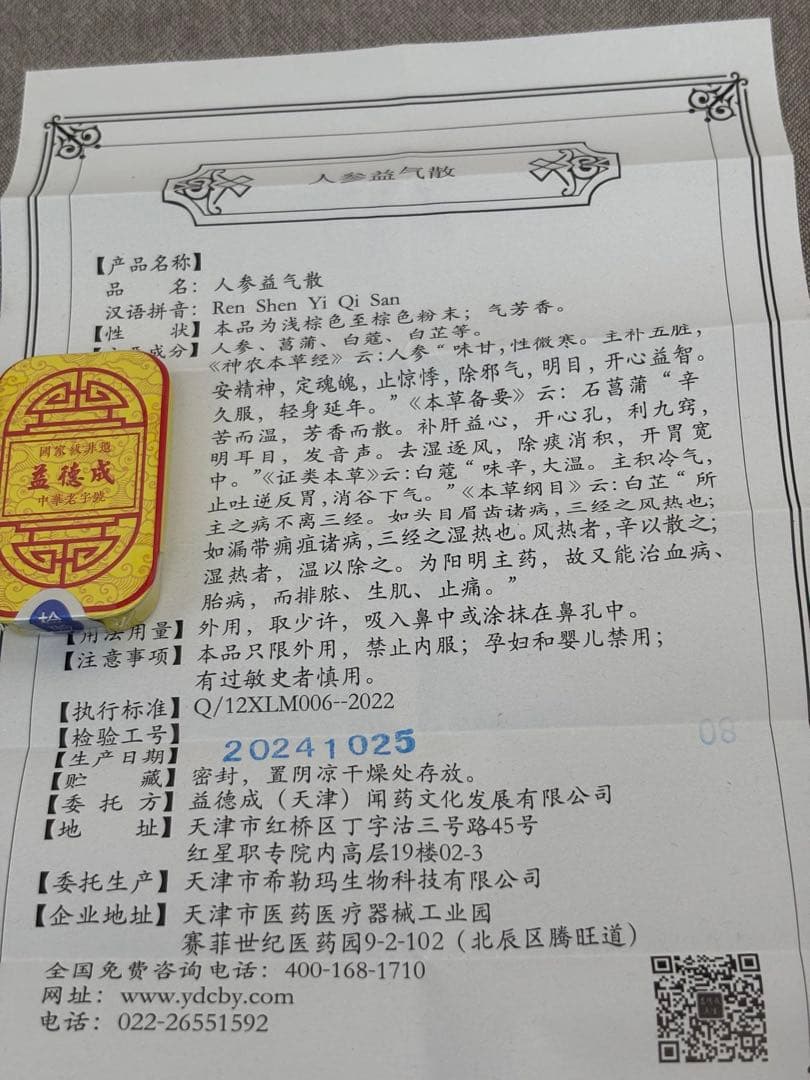 人参益气散
【产品名称】
品 名：人参益气散
汉语拼音：Ren Shen Yi Qi San
【性 状】本品为浅棕色至棕色粉末；气芳香。
成分】人参、菖蒲、白蔻、白芷等。
《神农本草经》云：人参“味甘，性微寒。主补五脏，
安精神，定魂魄，止惊悸，除邪气，明目，开心益智。
久服，轻身延年。”《本草备要》云：石菖蒲“辛
苦而温，芳香而散。补肝益心，开心孔，利九窍，
明耳目，发音声。去湿逐风，除痰消积，开胃宽
中。”《证类本草》云：白蔻“味辛，大温。主积冷气，
止吐逆反胃，消谷下气。”《本草纲目》云：白芷“所
主之病不离三经。如头目眉齿诸病，三经之风热也；
如漏带痈疽诸病，三经之湿热也。风热者，辛以散之；
湿热者，温以除之。为阳明主药，故又能治血病、
胎病，而排脓、生肌、止痛。”
【用法用量】外用，取少许，吸入鼻中或涂抹在鼻孔中。
【注意事项】本品只限外用，禁止内服；孕妇和婴儿禁用；
有过敏史者慎用。
【执行标准】Q/12XLM006--2022
【检验工号】 08
【生产日期】 20241025
【贮 藏】密封，置阴凉干燥处存放。
【委 托 方】益德成（天津）闻药文化发展有限公司
【地 址】天津市红桥区丁字沽三号路45号
红星职专院内高层19楼02-3
【委托生产】天津市希勒玛生物科技有限公司
【企业地址】天津市医药医疗器械工业园
赛菲世纪医药园9-2-102（北辰区腾旺道）
全国免费咨询电话：400-168-1710
网址：www.ydcby.com
电话：022-26551592
國家级非遗
益德成
中華老字號